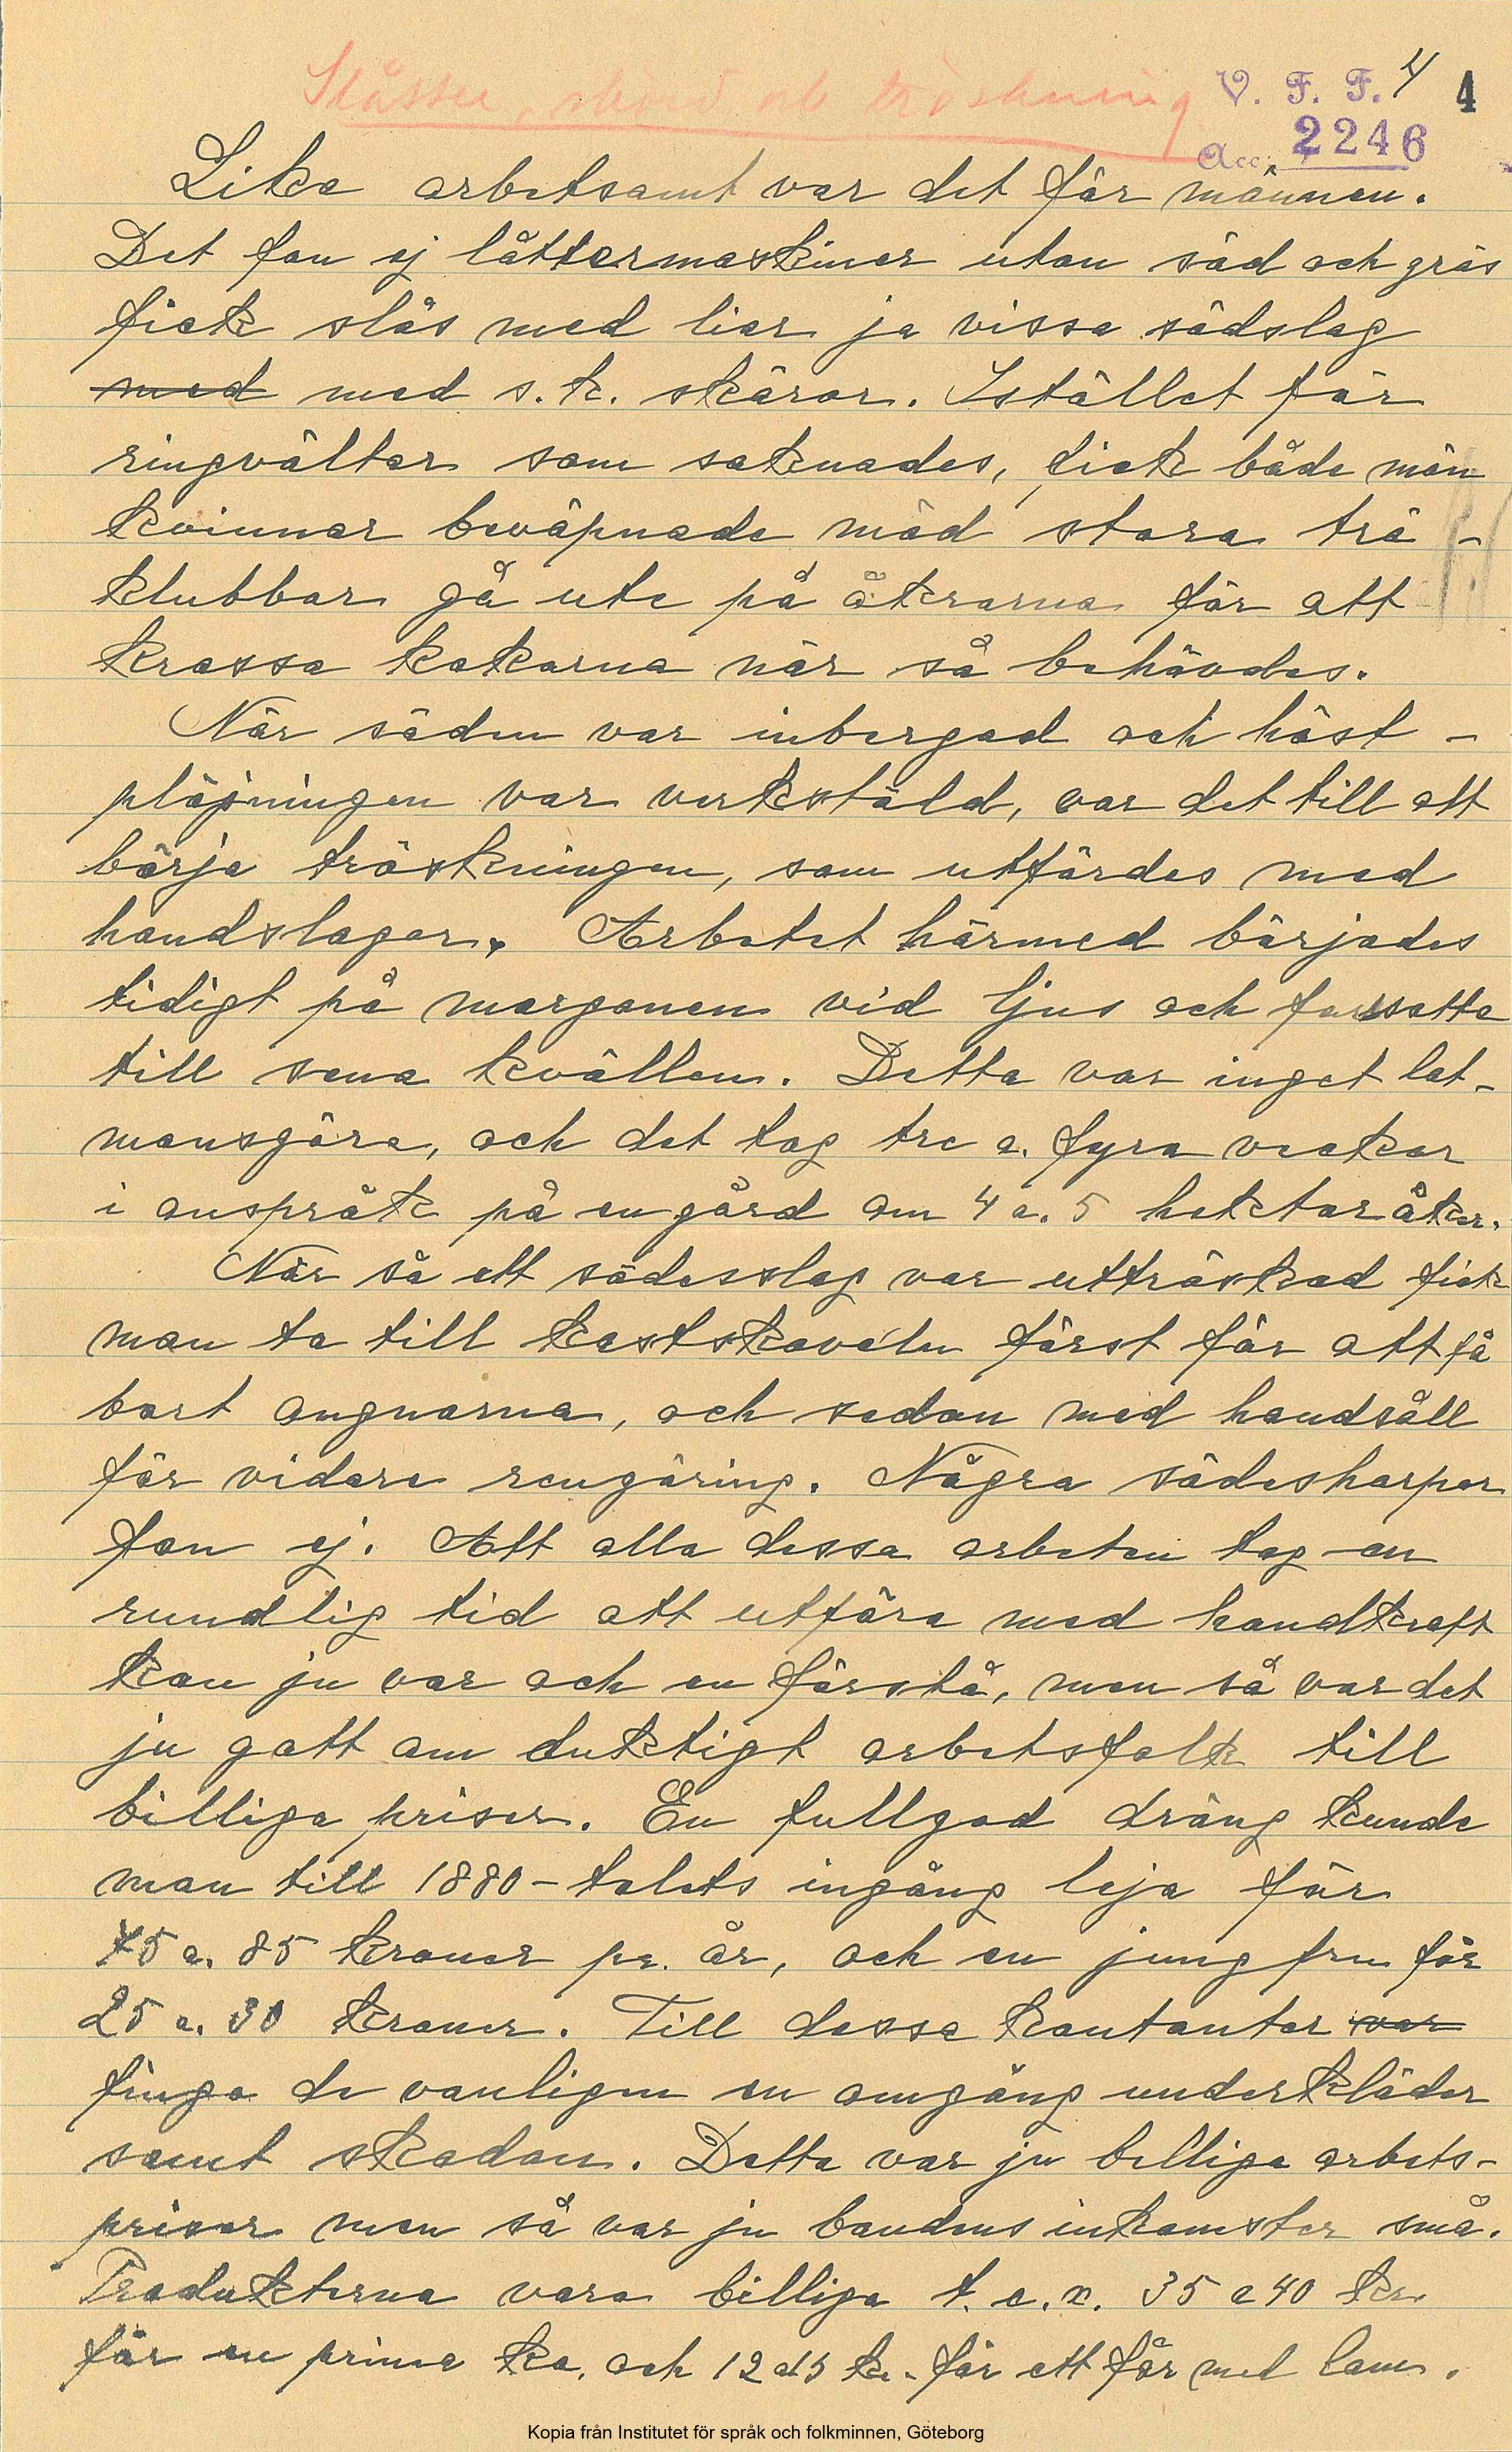 Slåtter, skörd och tröskning
V. F. F. 4 4
Acc. 2246
Lika arbetsamt var det för männen.
Det fan ej slåttermaskiner utan säd och gräs
fick slås med liar ja vissa sädslag
med med s.k. skäror. Istället för
ringvältar som saknades, fick både män
kvinnor beväpnade med stora trä-
klubbor gå ute på åkrarna för att
krossa kokorna när så behövdes.
När säden var inbergad och höst-
plöjningen var verkstäld, var det till att
börja tröskningen, som utfördes med
handslagor. Arbetet härmed börjades
tidigt på morgonen vid ljus och forsatte
till sena kvällen. Detta var inget lat-
mansgöra, och det tog tre a. fyra veckor
i anspråk på en gård om 4 a. 5 hektar åker.
När så ett sädesslag var uttröskad fick
man ta till kastskoveln först för att få
bort angnarna, och sedan med handsåll
för vidare rengöring. Några sädesharpor
fan ej. Att alla dessa arbeten tog en
rundlig tid att utföra med handkraft
kan ju var och en förstå, men så var det
ju gott om duktigt arbetsfolk till
billiga priser. En fullgod dräng kunde
man till 1880-talets ingång leja för
75 a. 85 kronor pr. år, och en jungfru för
25 a. 30 kronor. Till dessa kontanter var
fingo de vanligen en omgång underkläder
samt skodon. Detta var ju billiga arbets-
priser men så var ju bondens inkomster små.
Produkterna voro billiga t.e.x. 35 a 40 kr
för en prima ko. och 12 a 15 kr. för ett får med lam.
Kopia från Institutet för språk och folkminnen, Göteborg